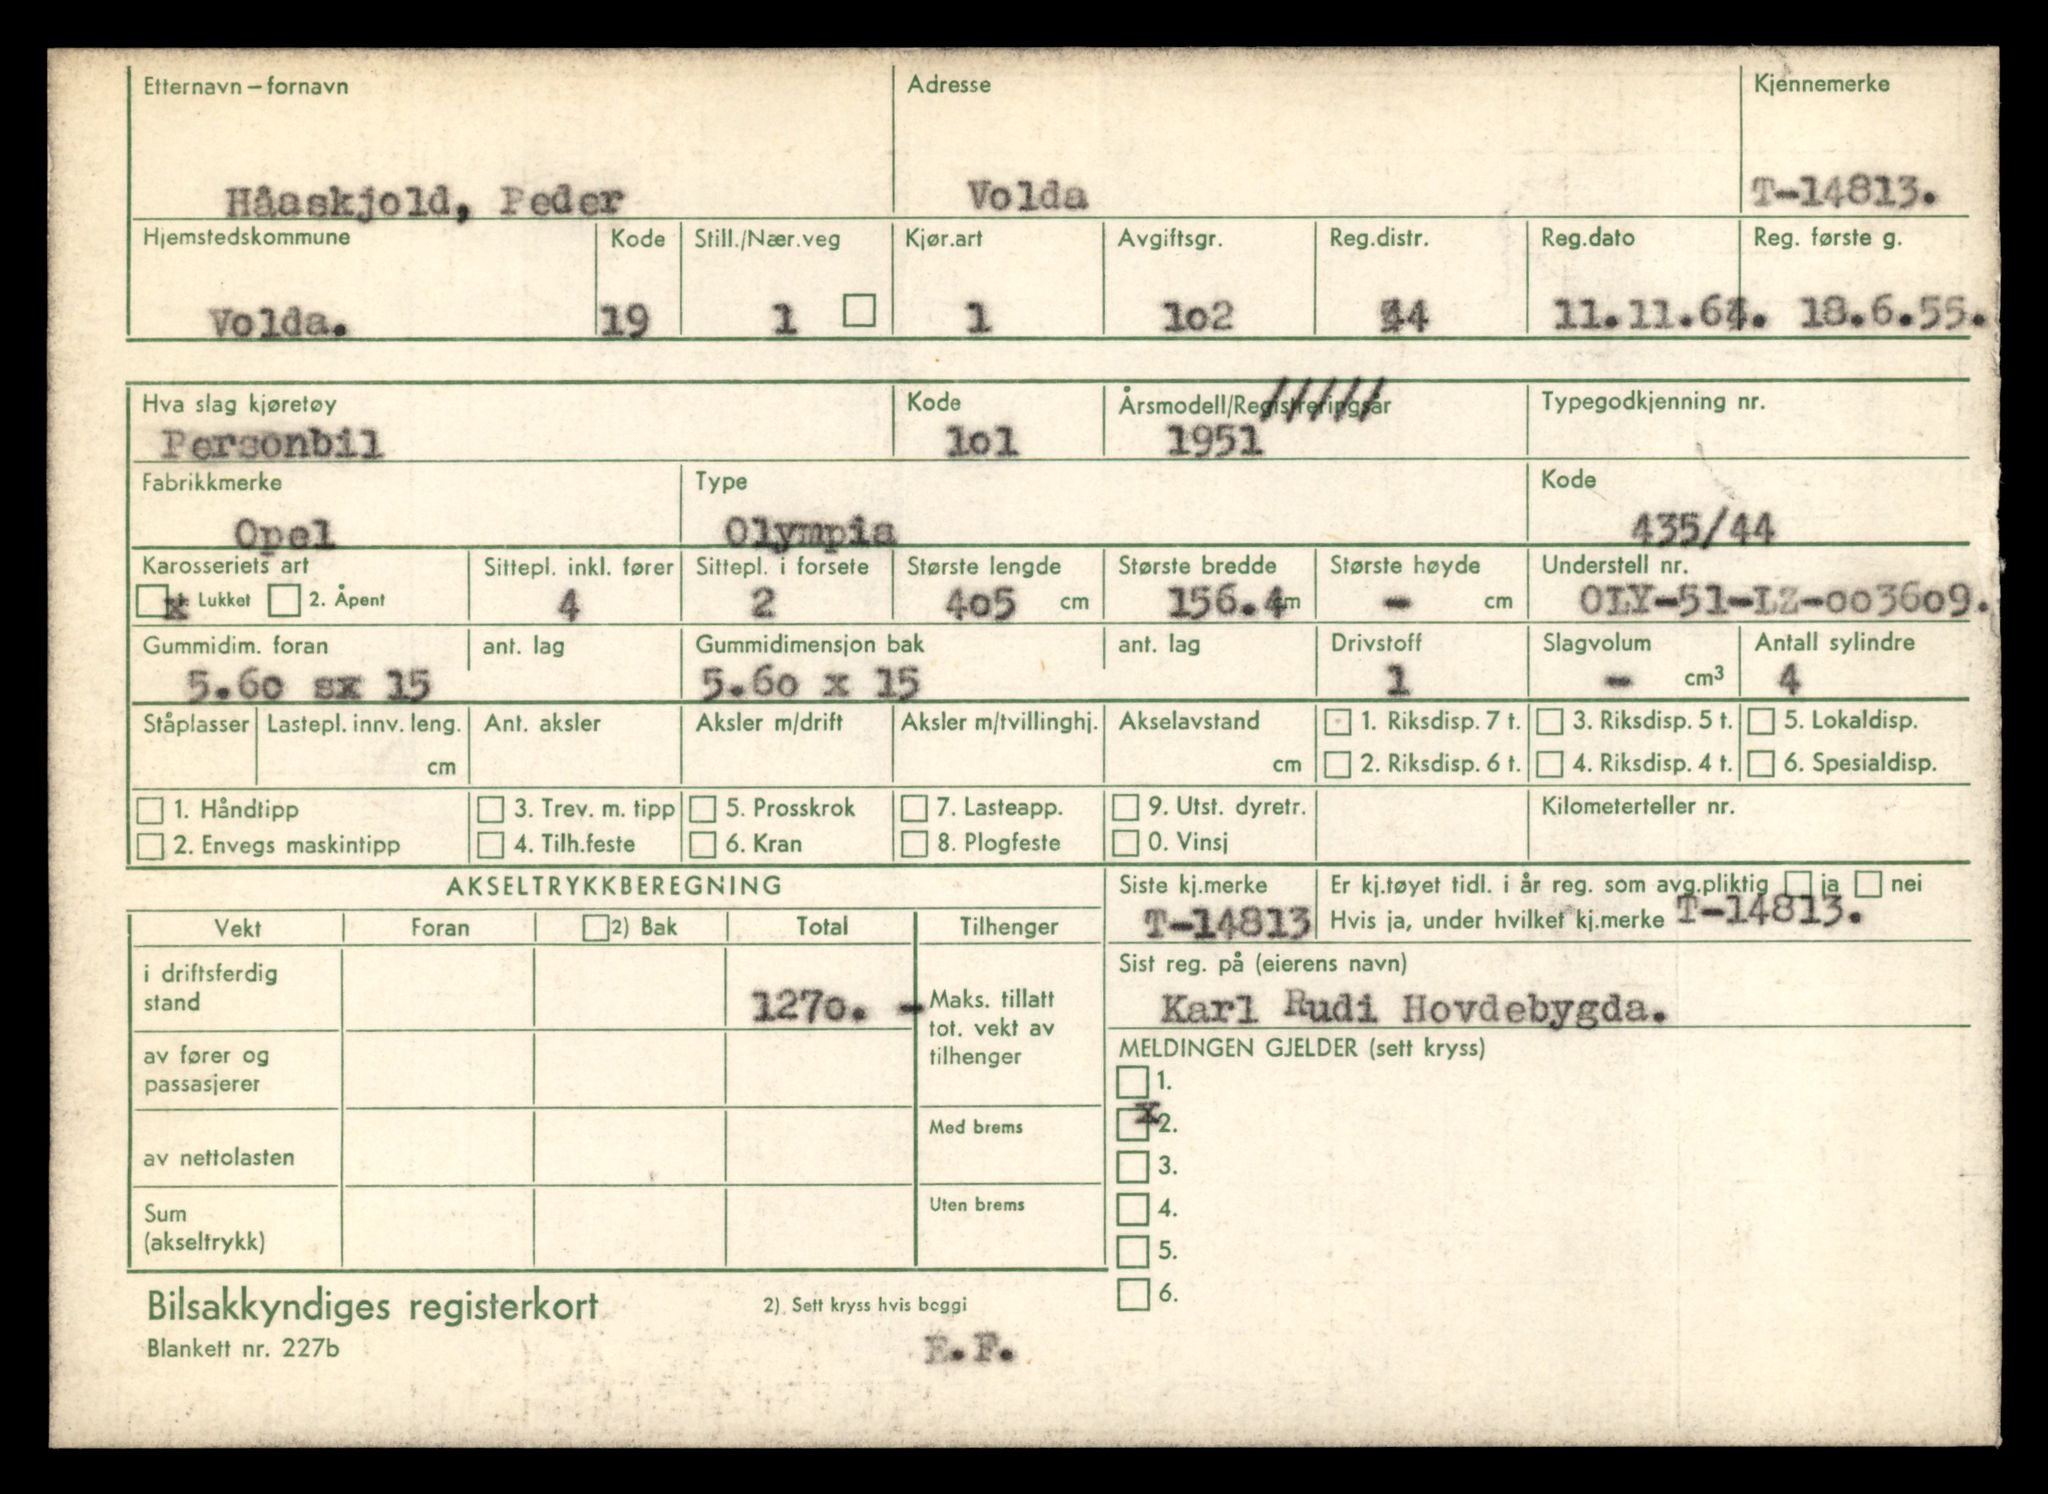 Etternavn – fornavn Adresse Kjennemerke
Håaskjold, Peder Volda T-14813.
Hjemstedskommune Kode Still./Nær.veg Kjør.art Avgiftsgr. Reg.distr. Reg.dato Reg. første g.
Volda. 19 1 1 1o2 18.6.55.
Hva slag kjøretøy Kode Årsmodell/Registreringsår Typegodkjenning nr.
Personbil 1o1 1951 /////
Fabrikkmerke Type Kode
Opel Olympia 435/44
Karosseriets art Sittepl. inkl. fører Sittepl. i forsete Største lengde Største bredde Største høyde Understell nr.
x 1. Lukket 2. Åpent 4 2 4o5 cm 156.4 cm - cm OLY-51-LZ-oo36o9.
Gummidim. foran ant. lag Gummidimensjon bak ant. lag Drivstoff Slagvolum Antall sylindre
5.6o sx 15 5.6o x 15 1 - cm³ 4
Ståplasser Lastepl. innv. leng. Ant. aksler Aksler m/drift Aksler m/tvillinghj. Akselavstand 1. Riksdisp. 7 t. 3. Riksdisp. 5 t. 5. Lokaldisp.
cm cm 2. Riksdisp. 6 t. 4. Riksdisp. 4 t. 6. Spesialdisp.
1. Håndtipp 3. Trev. m. tipp 5. Prosskrok 7. Lasteapp. 9. Utst. dyretr. Kilometerteller nr.
2. Envegs maskintipp 4. Tilh.feste 6. Kran 8. Plogfeste 0. Vinsj
AKSELTRYKKBEREGNING Siste kj.merke Er kj.tøyet tidl. i år reg. som avg.pliktig ja nei
T-14813 Hvis ja, under hvilket kj.merke T-14813.
Vekt Foran 2) Bak Total Tilhenger
Sist reg. på (eierens navn)
Karl Rudi Hovdebygda.
i driftsferdig
stand 127o. -
Maks. tillatt
tot. vekt av
tilhenger
MELDINGEN GJELDER (sett kryss)
av fører og
passasjerer
1.
x 2.
Med brems
av nettolasten
3.
Uten brems
4.
Sum
(akseltrykk)
5.
6.
Bilsakkyndiges registerkort 2) Sett kryss hvis boggi
Blankett nr. 227b E.F.